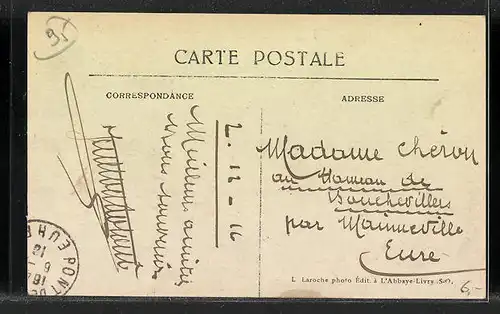 95
CARTE POSTALE
CORRESPONDANCE
ADRESSE
2 - 12 - 16
Meilleures amitiés
souvenir
Madame Chéron
au Hameau de
Bouchevilliers
par Mainneville
Eure
L. Laroche photo Édit. à L'Abbaye-Livry (S-O).
6,-
PONT
EURE